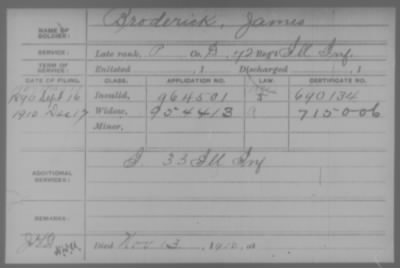 NAME OF SOLDIER: Broderick, James
SERVICE: Late rank, P Co. B, 72 Reg't Ill Inf.
TERM OF SERVICE: Enlisted , 1 Discharged , 1
DATE OF FILING. CLASS. APPLICATION NO. LAW. CERTIFICATE NO.
1890 Sept 16 Invalid, 964501 690134
1910 Dec 17 Widow, 954413 715006
Minor,
ADDITIONAL SERVICES: I. 33 Ill Inf
REMARKS:
Died Nov 13, 1910, at